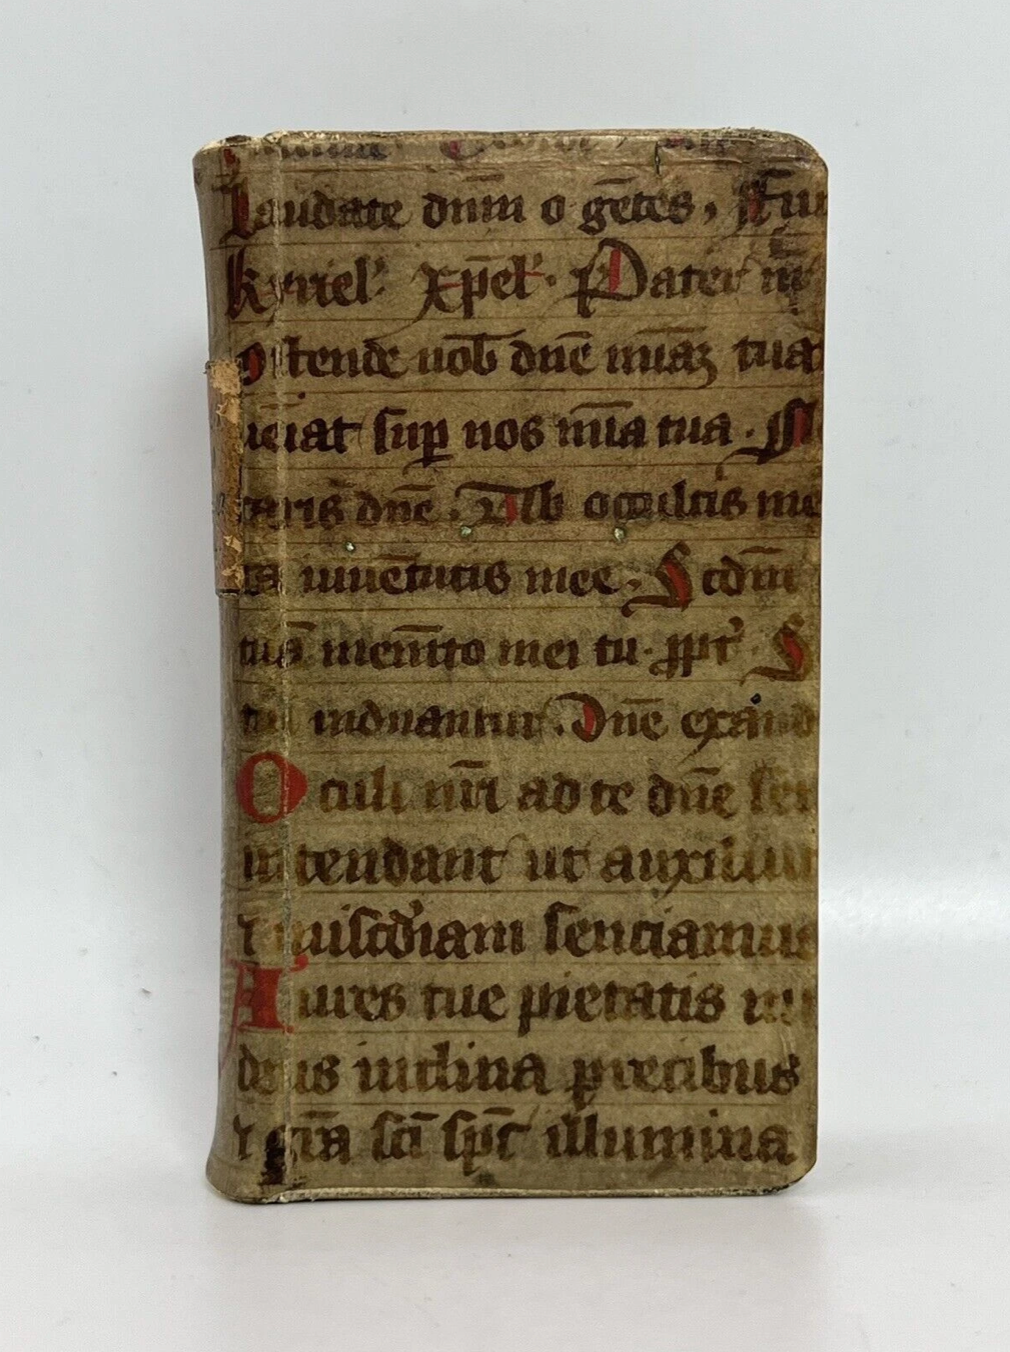 Laudate dn̄m o gētes, Fu
kyriel' xp̄el'. Pater nr̄
ostende nob̄ dn̄e mīaꝫ tuā
ueīat sup nos mīa tua.
dn̄e. Ab occultis me
iuuētutis mee. Scdm̄
tus memēto mei tu. ꝓpt' S
induantur. Dn̄e exaud
Oculi nr̄i ad te dn̄e
intendant ut auxiliu
ꞇ miscd'iam senciamus
Aures tue pietatis
deus inclina precibus
ꞇ gr̄a sc̄i sp̄c illumina